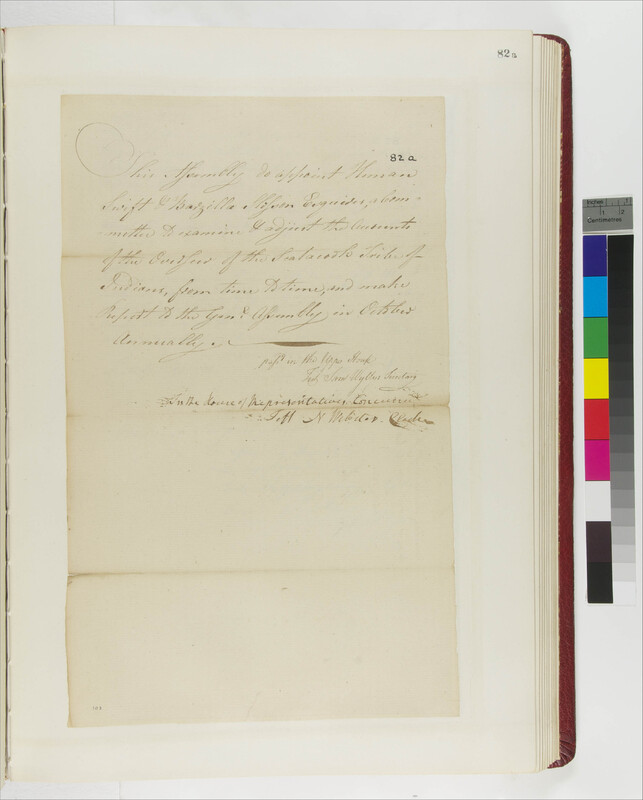 82a
82a
This Assembly do appoint Heman
Swift & Barzilla Slosson Esquires, a Com-
-mittee to examine & adjust the Accounts
of the Overseer of the Scatacook Tribe of
Indians, from time to time, and make
Report to the Genl. Assembly in October
Annually
pass'd in the Upper House
Test Saml Wyllys Secretary
In the House of Representatives Concurred
Test N Webster Clerk
Inches
1 2
Centimetres